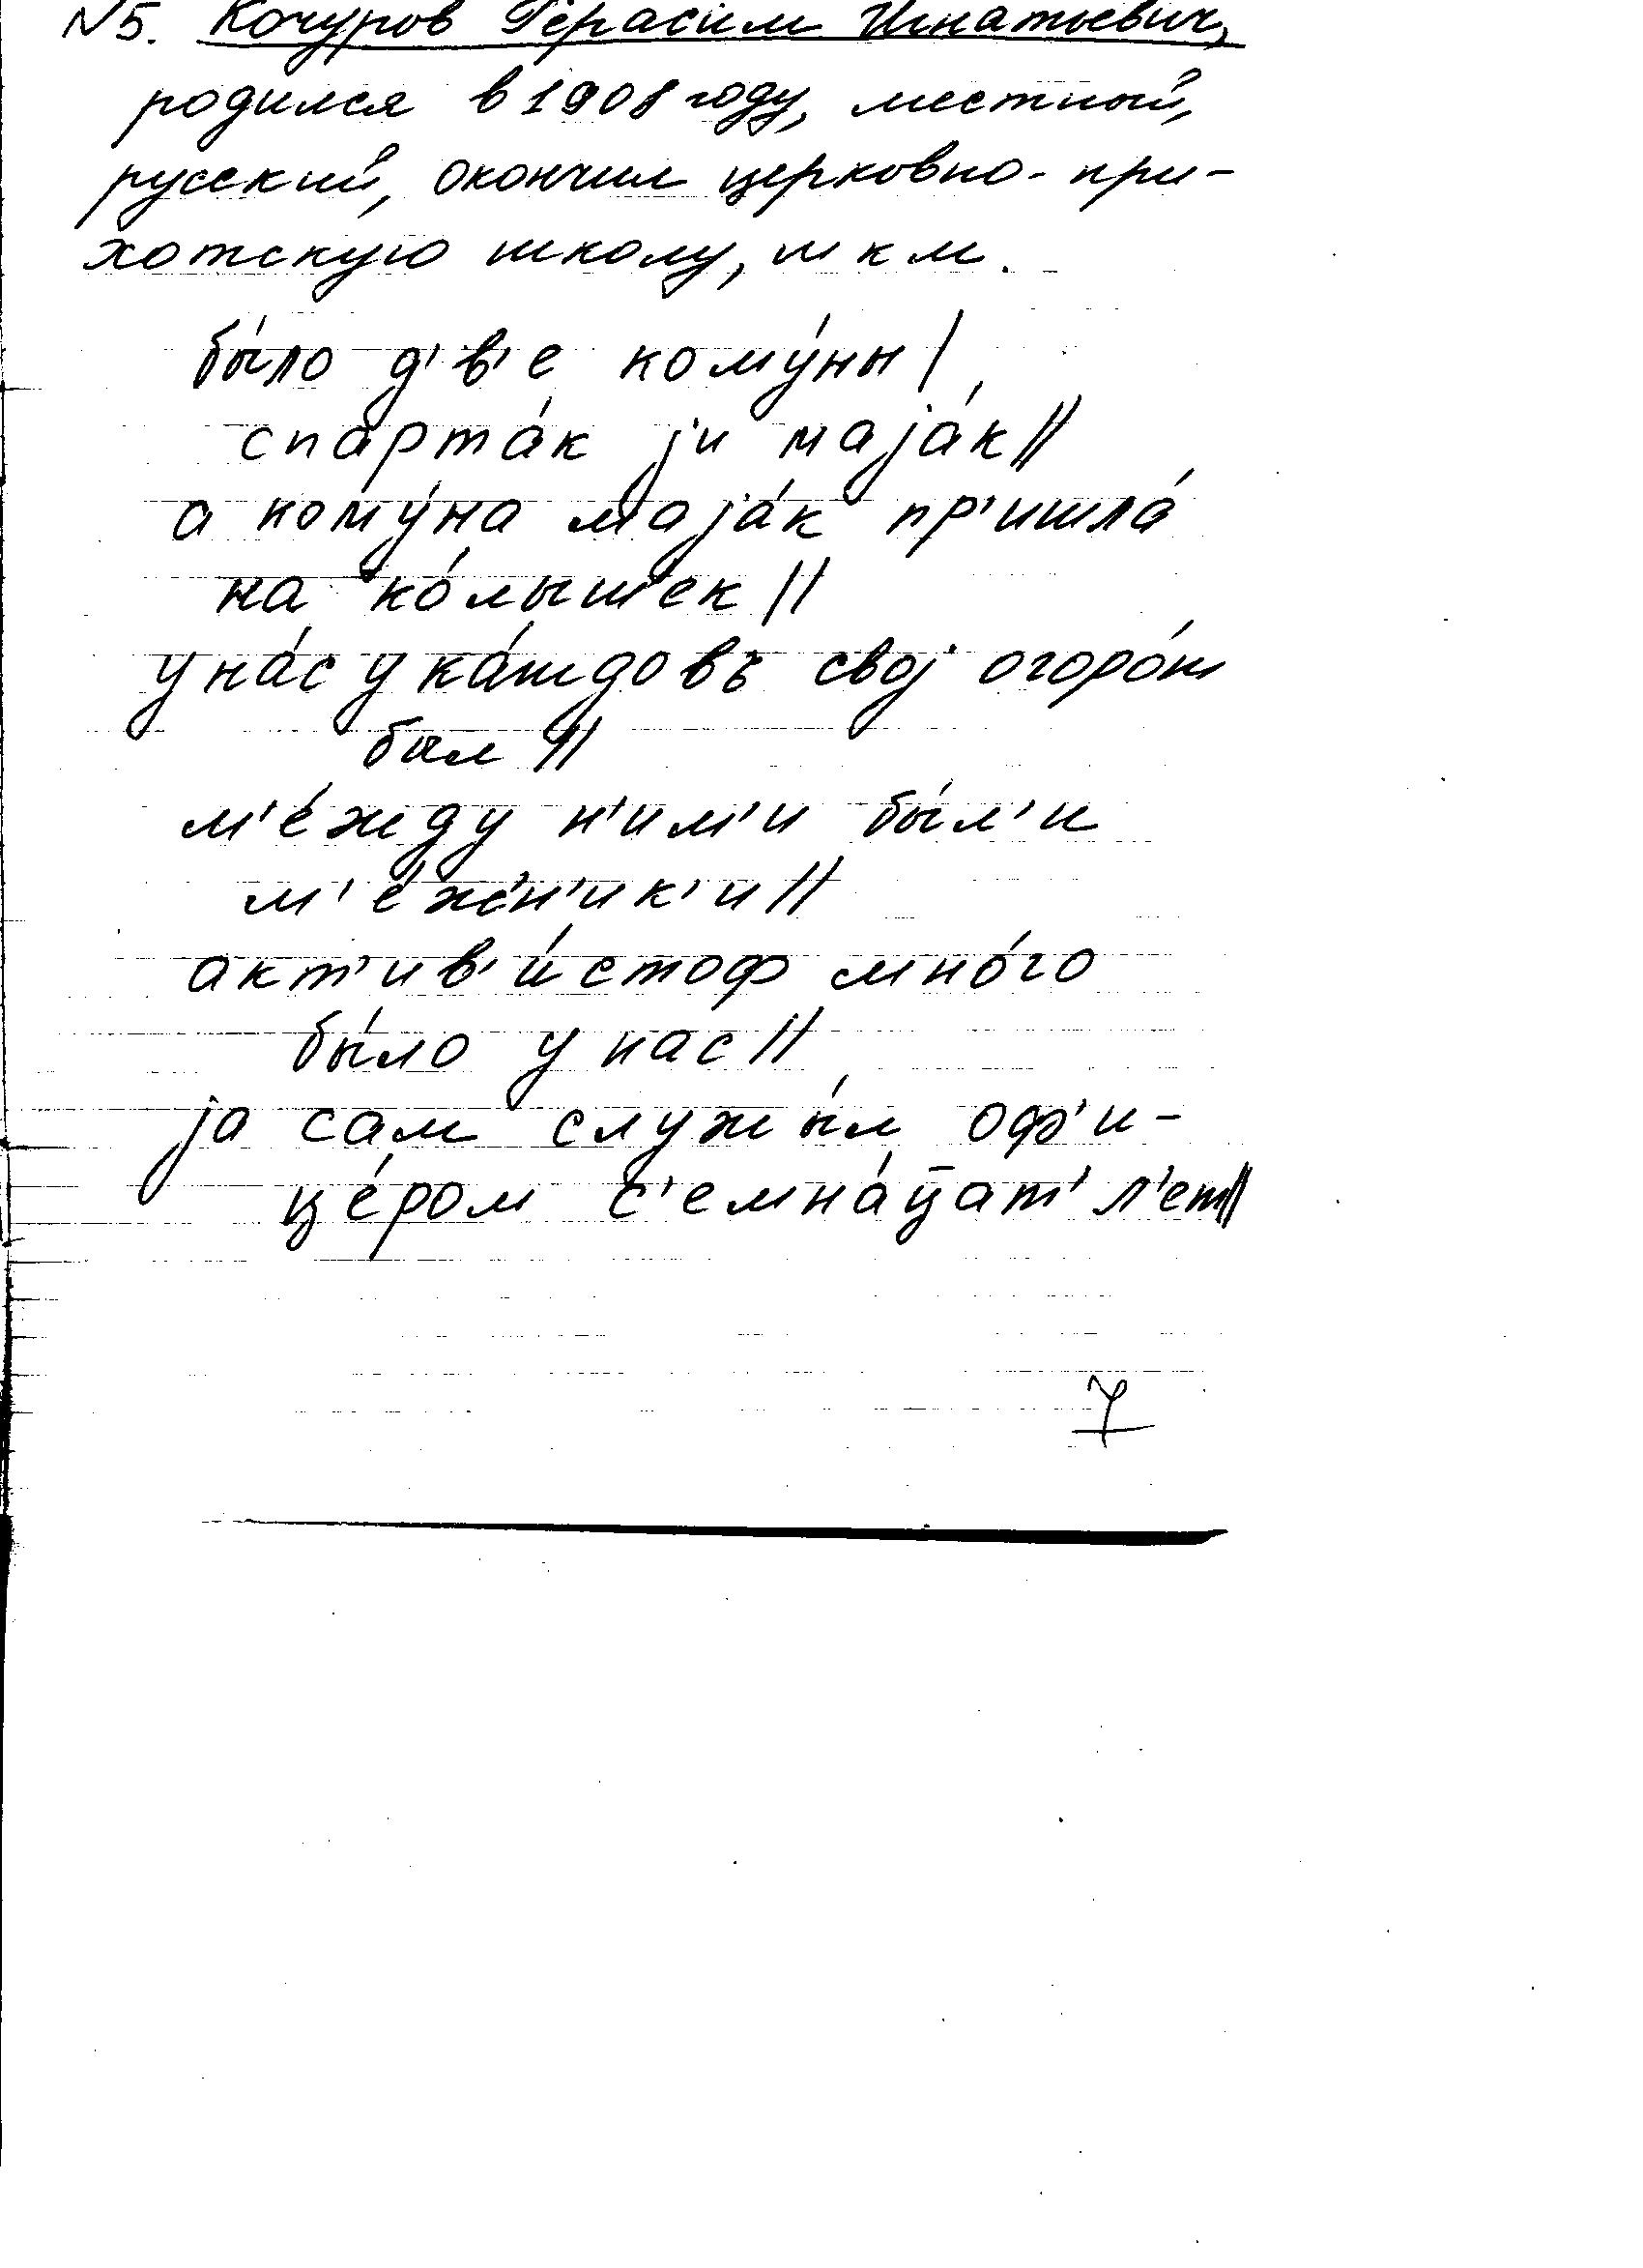 N5. Кочуров Герасим Игнатьевич,
родился в 1908 году, местный,
русский, окончил церковно-при-
хотскую школу, ш к м.
бы́ло д'в'е кому́ны |
спарта́к jи маjа́к ||
а кому́на маjа́к пр'ишла́
на ко́лышек ||
у на́с у ка́ждовъ своj огоро́т
был ||
м'е́жду н'им'и бы́л'и
м'е́жн'ик'и ||
акт'ив'и́стоф мно́го
бы́ло у нас ||
jа сам служы́л оф'и-
це́ром с'емна́ц̄ат' л'ет ||
7